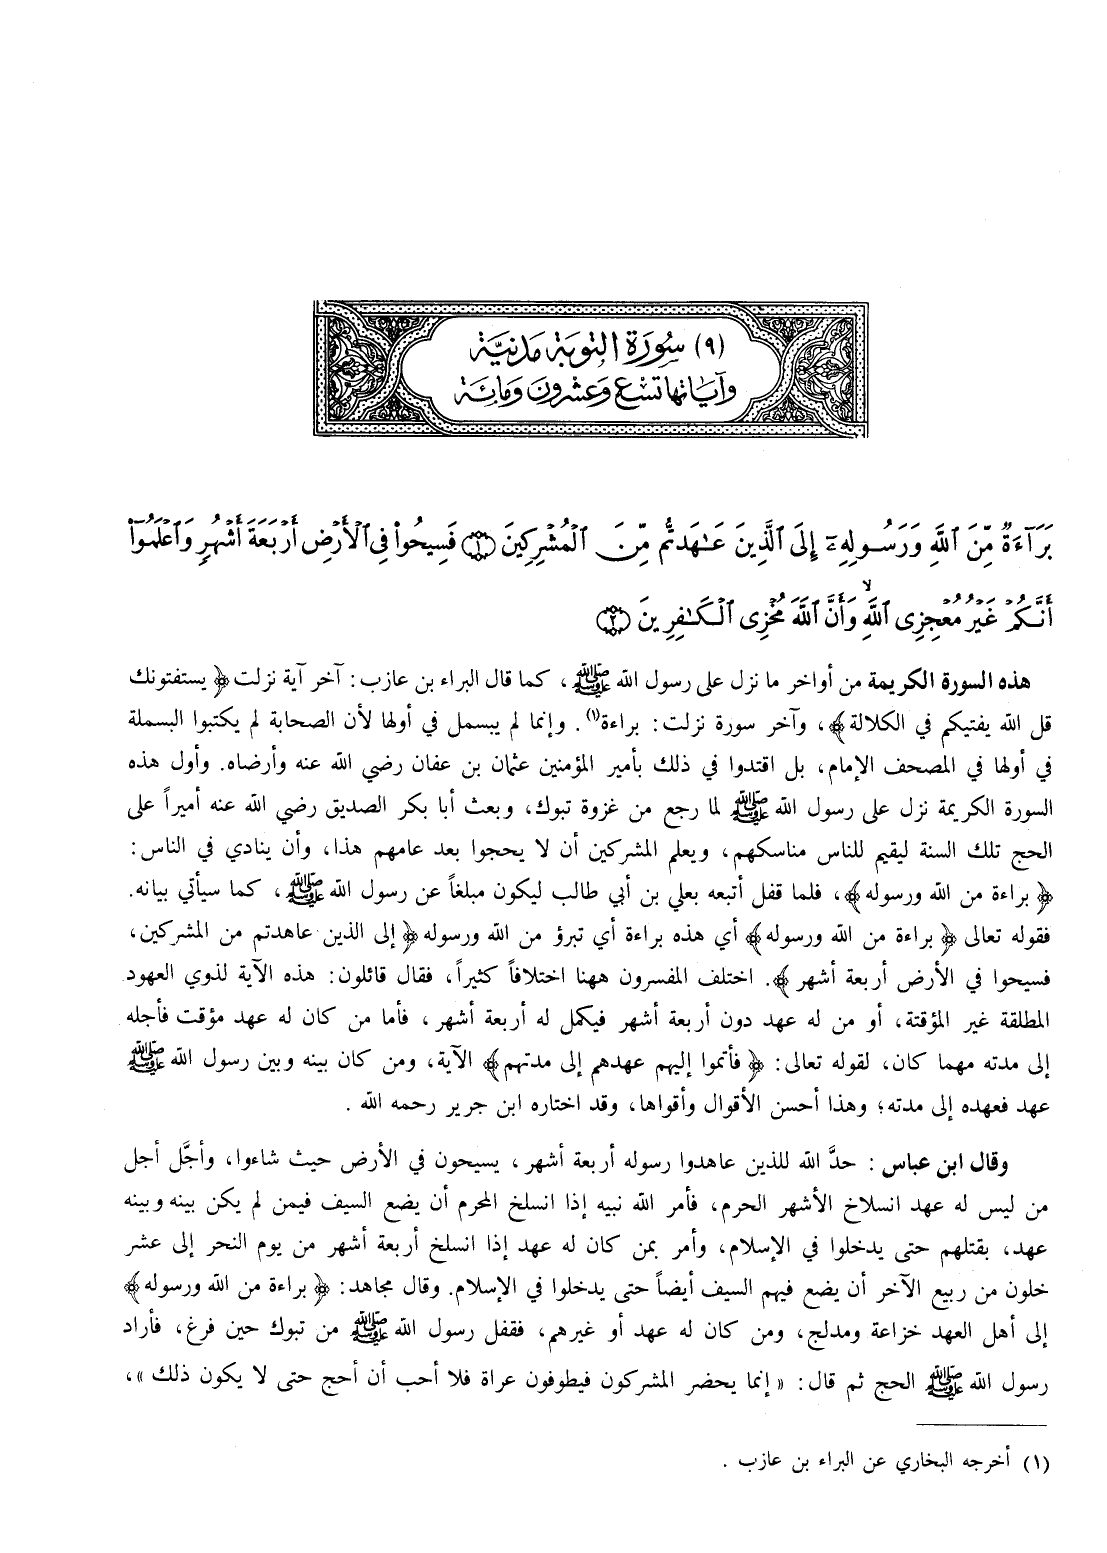 (٩) سورة التوبة مدنية
وآياتها تسع وعشرون ومائة
بَرَآءَةٌ مِّنَ ٱللَّهِ وَرَسُولِهِۦٓ إِلَى ٱلَّذِينَ عَـٰهَدتُّم مِّنَ ٱلْمُشْرِكِينَ ۝١ فَسِيحُوا۟ فِى ٱلْأَرْضِ أَرْبَعَةَ أَشْهُرٍ وَٱعْلَمُوٓا۟
أَنَّكُمْ غَيْرُ مُعْجِزِى ٱللَّهِ ۙ وَأَنَّ ٱللَّهَ مُخْزِى ٱلْكَـٰفِرِينَ ۝٢
هذه السورة الكريمة من أواخر ما نزل على رسول الله ﷺ، كما قال البراء بن عازب: آخر آية نزلت ﴿ يستفتونك
قل الله يفتيكم في الكلالة ﴾، وآخر سورة نزلت: براءة(١). وإنما لم يبسمل في أولها لأن الصحابة لم يكتبوا البسملة
في أولها في المصحف الإمام، بل اقتدوا في ذلك بأمير المؤمنين عثمان بن عفان رضي الله عنه وأرضاه. وأول هذه
السورة الكريمة نزل على رسول الله ﷺ لما رجع من غزوة تبوك، وبعث أبا بكر الصديق رضي الله عنه أميراً على
الحج تلك السنة ليقيم للناس مناسكهم، ويعلم المشركين أن لا يحجوا بعد عامهم هذا، وأن ينادي في الناس:
﴿ براءة من الله ورسوله ﴾، فلما قفل أتبعه بعلي بن أبي طالب ليكون مبلغاً عن رسول الله ﷺ، كما سيأتي بيانه.
فقوله تعالى ﴿ براءة من الله ورسوله ﴾ أي هذه براءة أي تبرؤ من الله ورسوله ﴿ إلى الذين عاهدتم من المشركين،
فسيحوا في الأرض أربعة أشهر ﴾. اختلف المفسرون ههنا اختلافاً كثيراً، فقال قائلون: هذه الآية لذوي العهود
المطلقة غير المؤقتة، أو من له عهد دون أربعة أشهر فيكمل له أربعة أشهر، فأما من كان له عهد مؤقت فأجله
إلى مدته مهما كان، لقوله تعالى: ﴿ فأتموا إليهم عهدهم إلى مدتهم ﴾ الآية، ومن كان بينه وبين رسول الله ﷺ
عهد فعهده إلى مدته؛ وهذا أحسن الأقوال وأقواها، وقد اختاره ابن جرير رحمه الله .
وقال ابن عباس : حدَّ الله للذين عاهدوا رسوله أربعة أشهر، يسيحون في الأرض حيث شاءوا، وأجَّل أجل
من ليس له عهد انسلاخ الأشهر الحرم، فأمر الله نبيه إذا انسلخ المحرم أن يضع السيف فيمن لم يكن بينه وبينه
عهد، بقتلهم حتى يدخلوا في الإسلام، وأمر بمن كان له عهد إذا انسلخ أربعة أشهر من يوم النحر إلى عشر
خلون من ربيع الآخر أن يضع فيهم السيف أيضاً حتى يدخلوا في الإسلام. وقال مجاهد: ﴿ براءة من الله ورسوله ﴾
إلى أهل العهد خزاعة ومدلج، ومن كان له عهد أو غيرهم، فقفل رسول الله ﷺ من تبوك حين فرغ، فأراد
رسول الله ﷺ الحج ثم قال: « إنما يحضر المشركون فيطوفون عراة فلا أحب أن أحج حتى لا يكون ذلك »،
(١) أخرجه البخاري عن البراء بن عازب .